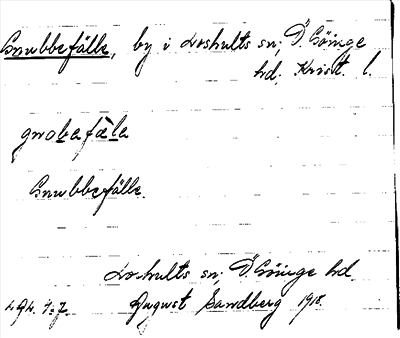 Gnubbefälle, by i Loshults sn, Ö. Göinge
hd. Krist. l.
gnobafäla
Gnubbefälle.
Loshults sn, Ö. Göinge hd.
August Sandberg 1918.